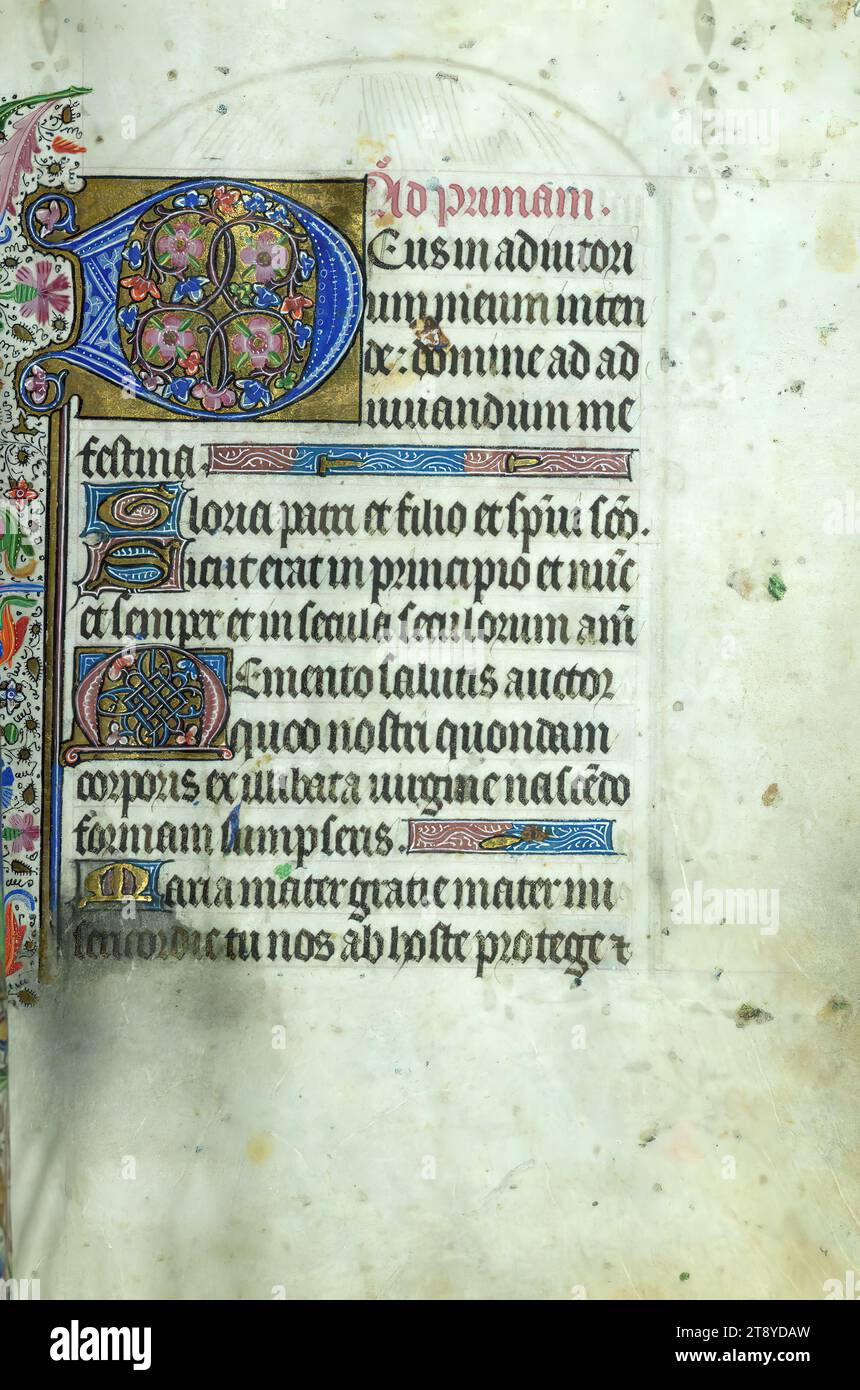 Ad primam.
Deus in adiutori
um meum inten
de: domine ad ad
iuuandum me
festina.
Gloria patri et filio et sp̄iu sc̄o.
Sicut erat in principio et nūc
et semper et in secula seculorum am̄
Memento salutis auctor
quod nostri quondam
corporis ex illibata uirgine nascēdo
formam sumpseris.
Maria mater gratie mater mi
sericordie tu nos ab hoste protege ⁊
alamy
Image ID: 2T8YDAW
www.alamy.com